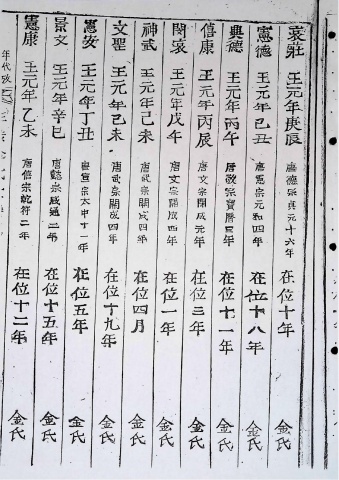 哀莊 王元年庚辰 唐德宗貞元十六年 在位十年 金氏
憲德 王元年己丑 唐憲宗元和四年 在位十八年 金氏
興德 王元年丙午 唐敬宗寶曆年 在位十一年 金氏
僖康 王元年丙辰 唐文宗開成元年 在位三年 金氏
閔哀 王元年戊午 唐文宗開成四年 在位一年 金氏
神武 王元年己未 唐武宗開成四年 在位四月 金氏
文聖 王元年己未 唐武宗開成四年 在位十九年 金氏
憲安 王元年丁丑 唐宣宗太中十一年 在位五年 金氏
景文 王元年辛巳 唐懿宗咸通二年 在位十五年 金氏
憲康 王元年乙未 唐僖宗乾符二年 在位十二年 金氏
年代攷